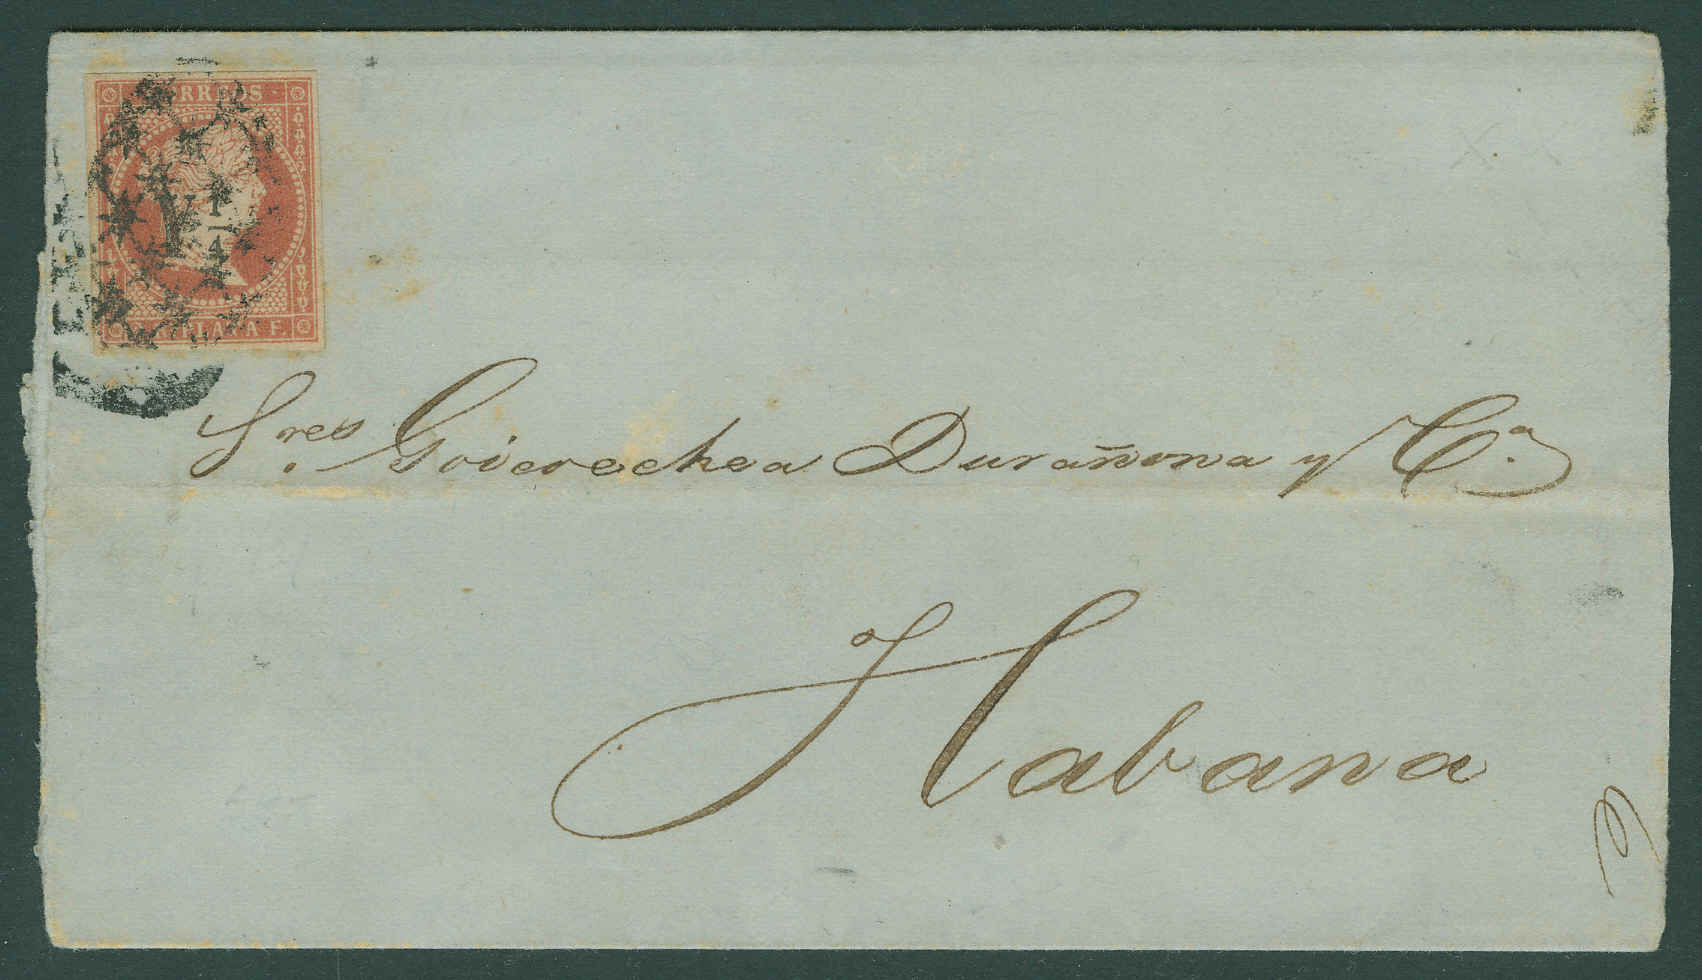 CORREOS
Y 1/4
R. PLATA F.
Sres Goicoechea Durañona y Ca
Habana